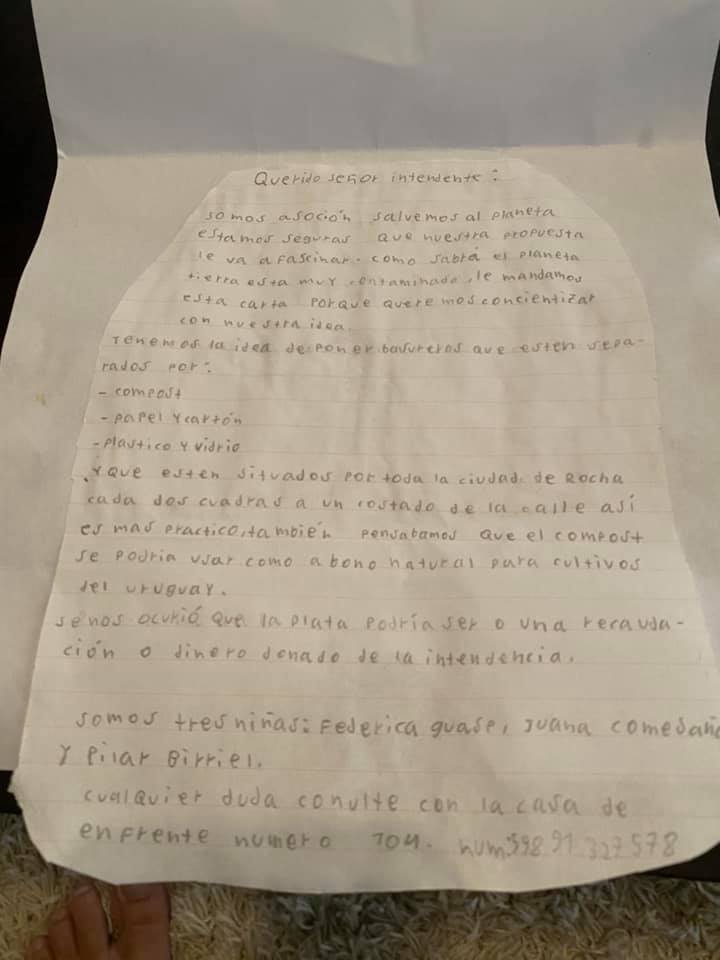 Querido señor intendente:
somos asoción salvemos al planeta
estamos seguras que nuestra propuesta
le va a fascinar. como sabtá el planeta
tierra esta muy contaminado, le mandamos
esta carta porque queremos concientizar
con nuestra idea.
Tenemos la idea de poner basureros que esten sepa-
rados por:
- compost
- papel y cartón
- plastico y vidrio
y que esten situados por toda la ciudad de Rocha
cada dos cuadras a un costado de la calle así
es mas practico, también pensabamos que el compost
se podria usar como abono natural para cultivos
del uruguay.
se nos ocurió que la plata podría ser o una recauda-
ción o dinero donado de la intendencia.
somos tres niñas: Federica guase, Juana comedaña
y Pilar Birriel.
cualquier duda conulte con la casa de
enfrente numero 704. num:598 91 327 578